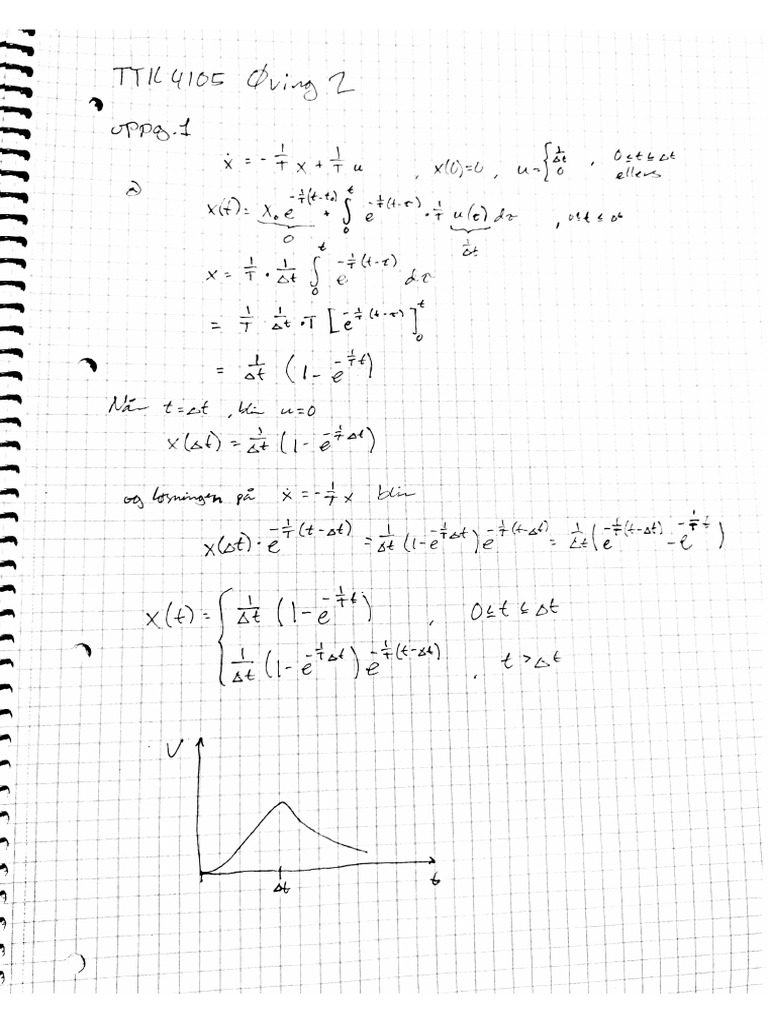 TTK4105 Øving 2
oppg. 1
ẋ = -1/T x + 1/T u , x(0)=0 , u = { 1/Δt , 0≤t≤Δt
0 ellers
a)
x(t) = x₀ e^{-1/T(t-t₀)} + ∫₀ᵗ e^{-1/T(t-τ)} · 1/T u(τ) dτ , 0≤t≤Δt
0 1/Δt
x = 1/T · 1/Δt ∫₀ᵗ e^{-1/T(t-τ)} dτ
= 1/T · 1/Δt · T [e^{-1/T(t-τ)}]₀ᵗ
= 1/Δt (1 - e^{-1/T t})
Når t=Δt , blir u=0
x(Δt) = 1/Δt (1 - e^{-1/T Δt})
og løsningen på ẋ = -1/T x blir
x(Δt) · e^{-1/T(t-Δt)} = 1/Δt (1 - e^{-1/T Δt}) e^{-1/T(t-Δt)} = 1/Δt (e^{-1/T(t-Δt)} - e^{-1/T t})
x(t) = { 1/Δt (1 - e^{-1/T t}) , 0≤t≤Δt
1/Δt (1 - e^{-1/T Δt}) e^{-1/T(t-Δt)} , t>Δt
V
Δt
t